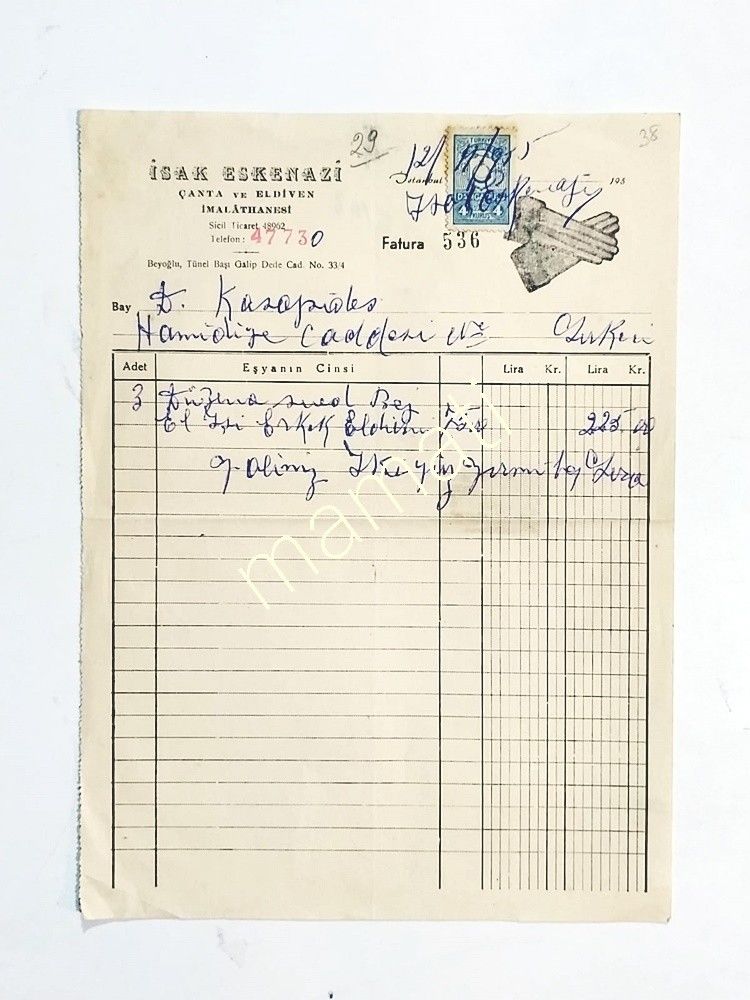 29
38
İSAK ESKENAZİ
ÇANTA VE ELDİVEN
İMALÂTHANESİ
Sicil Ticaret 48962
Telefon: 47730
Beyoğlu, Tünel Başı Galip Dede Cad. No. 33/4
İstanbul 195
Fatura 536
Bay D. Kasapides
Hamidiye Caddesi
Adet Eşyanın Cinsi Lira Kr. Lira Kr.
3 Düzena sued Bej
El İşi Erkek Eldiveni 75 225
İki yüz yirmi beş Lira
mamati